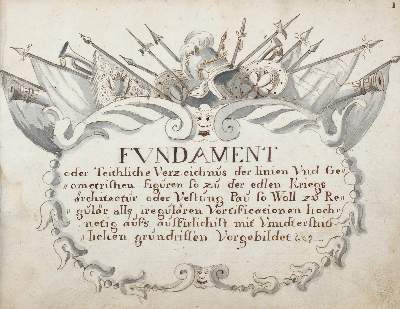 1
FVNDAMENT
oder Teithliche Verzeichnüs der linien Vnd Ge-
ometrishen figuren so zu der edlen Kriegs
architectur oder Vestung Pau so Woll zu Re-
gulär alls iregulären Fortificationen hoch-
nötig aufs ausfirlichist mit Vnnderschid-
lichen grundrissen Vorgebildet